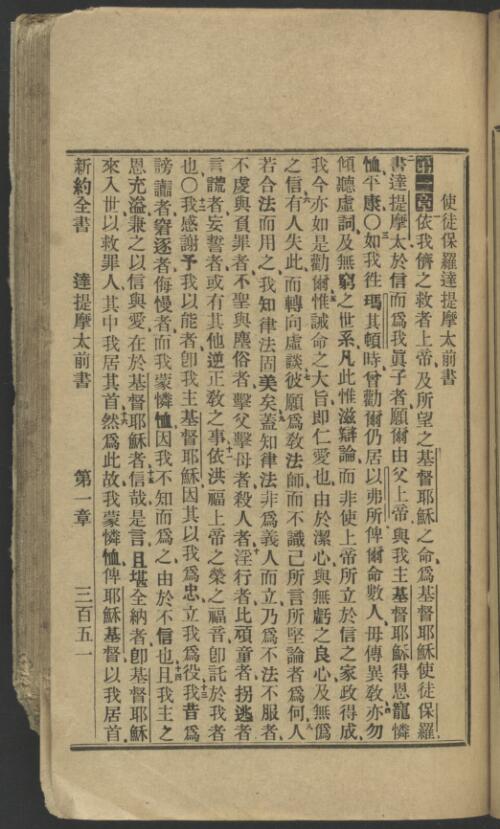 使徒保羅達提摩太前書
第一章依我儕之救者上帝及所望之基督耶穌之命爲基督耶穌使徒保羅
二書達提摩太於信而爲我眞子者願爾由父上帝與我主基督耶穌得恩寵憐
恤平康〇三如我往瑪其頓時曾勸爾仍居以弗所俾爾命數人毋傳異敎四亦勿
傾聽虛詞及無窮之世系凡此惟滋辯論而非使上帝所立於信之家政得成
我今亦如是勸爾五惟誡命之大旨即仁愛也由於潔心與無虧之良心及無僞
之信六有人失此而轉向虛談七彼願爲敎法師而不識己所言所堅論者爲何八人
若合法而用之我知律法固美矣九蓋知律法非爲義人而立乃爲不法不服者
不虔與負罪者不聖與塵俗者擊父擊母者殺人者十淫行者比頑童者拐逃者
言謊者妄誓者或有其他逆正敎之事十一依洪福上帝之榮之福音卽託於我者
也〇十二我感謝予我以能者卽我主基督耶穌因其以我爲忠立我爲役十三我昔爲
謗讟者窘逐者侮慢者而我蒙憐恤因我不知而爲之由於不信也十四且我主之
恩充溢兼之以信與愛在於基督耶穌者十五信哉是言且堪全納者卽基督耶穌
來入世以救罪人其中我居其首十六然爲此故我蒙憐恤俾耶穌基督以我居首
新約全書　達提摩太前書　第一章　三百五一